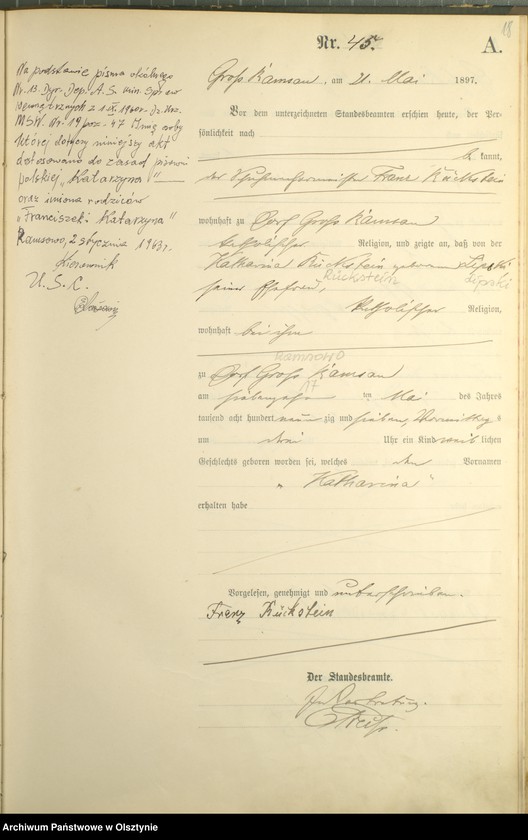 18
Nr. 45.
A.
Groß Ramsau, am 21. Mai 1897.
Vor dem unterzeichneten Standesbeamten erschien heute, der Per-
sönlichkeit nach
kannt,
der Franz Rückstein
wohnhaft zu Dorf Groß Ramsau
katholischer Religion, und zeigte an, daß von der
Katharina Rückstein geborenen Lipski
Rückstein Lipski
seiner Ehefrau,
katholischer Religion,
wohnhaft bei ihm
Ramsowo
zu Dorf Groß Ramsau
17
am siebenzehn ten Mai des Jahres
tausend acht hundert neun zig und sieben, Vormittags
um drei Uhr ein Kind weib lichen
Geschlechts geboren worden sei, welches den Vornamen
„ Katharina “
erhalten habe
Vorgelesen, genehmigt und unterschrieben.
Franz Rückstein
Der Standesbeamte.
In Vertretung.
Na podstawie pisma okólnego
Nr. 13 Dyr. Dep. A. S. Min. Spraw
Wewnętrznych z 1 IX. 1960r. Dz. Urz.
MSW. Nr. 19 poz. 47 Imię osoby
której dotyczy niniejszy akt
dostosowano do zasad pisowni
polskiej „Katarzyna" —
oraz imiona rodziców
„Franciszek i Katarzyna"
Ramsowo, 2 stycznia 1963r.
Kierownik
U. S. C.
Archiwum Państwowe w Olsztynie